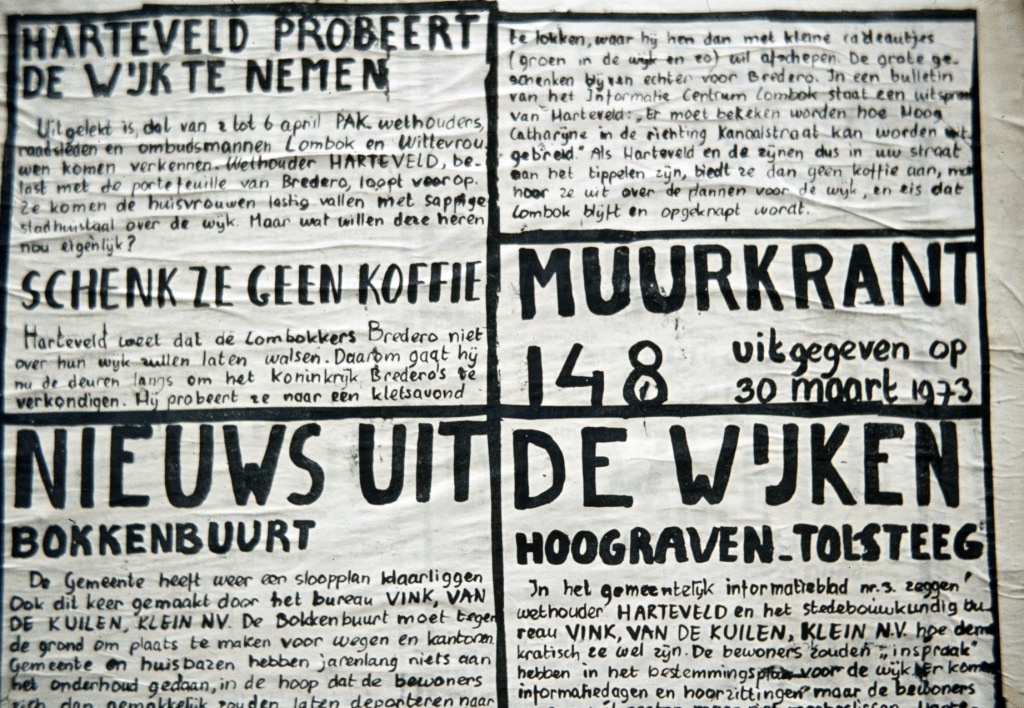 HARTEVELD PROBEERT
DE WIJK TE NEMEN
Uitgelekt is, dat van 2 tot 6 april PAK wethouders,
raadsleden en ombudsmannen Lombok en Wittevrou
wen komen verkennen. Wethouder HARTEVELD, be-
last met de portefeuille van Bredero, loopt voorop.
Ze komen de huisvrouwen lastig vallen met sappige
stadhuistaal over de wijk. Maar wat willen deze heren
nou eigenlijk?
SCHENK ZE GEEN KOFFIE
Harteveld weet dat de Lombokkers Bredero niet
over hun wijk zullen laten walsen. Daarom gaat hij
nu de deuren langs om het koninkrijk Bredero's te
verkondigen. Hij probeert ze naar een kletsavond
te lokken, waar hij hen dan met kleine cadeautjes
(groen in de wijk en zo) wil afschepen. De grote ge-
schenken blijven echter voor Bredero. In een bulletin
van het Informatie Centrum Lombok staat een uitspraak
van Harteveld: „Er moet bekeken worden hoe Hoog
Catharijne in de richting Kanaalstraat kan worden uit
gebreid." Als Harteveld en de zijnen dus in uw straat
aan het tippelen zijn, biedt ze dan geen koffie aan, maar
hoor ze uit over de plannen voor de wijk, en eis dat
Lombok blijft en opgeknapt wordt.
MUURKRANT
148 uitgegeven op
30 maart 1973
NIEUWS UIT DE WIJKEN
BOKKENBUURT
De Gemeente heeft weer een sloopplan klaarliggen
Ook dit keer gemaakt door het bureau VINK, VAN
DE KUILEN, KLEIN NV. De Bokkenbuurt moet tegen
de grond om plaats te maken voor wegen en kantoren
Gemeente en huisbazen hebben jarenlang niets aan
het onderhoud gedaan, in de hoop dat de bewoners
zich dan gemakkelijk zouden laten deporteren naar
HOOGRAVEN-TOLSTEEG
In het gemeentelijk informatieblad nr.3. zeggen
wethouder HARTEVELD en het stedebouwkundig bu-
reau VINK, VAN DE KUILEN, KLEIN N.V. hoe demo
kratisch ze wel zijn. De bewoners zouden „inspraak"
hebben in het bestemmingsplan voor de wijk. Er komen
informatiedagen en hoorzittingen maar de bewoners